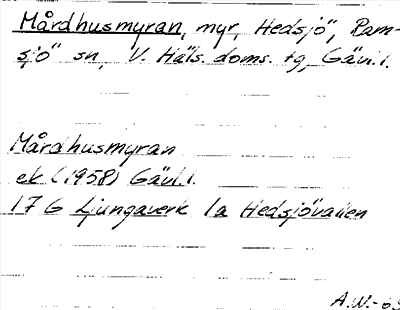 Mårdhusmyran, myr, Hedsjö, Ram-
sjö sn, V. Häls. doms. tg, Gävl.l.
Mårdhusmyran
ek (1958) Gävl.l.
17 G Ljungaverk 1a Hedsjövallen
A.W.-63